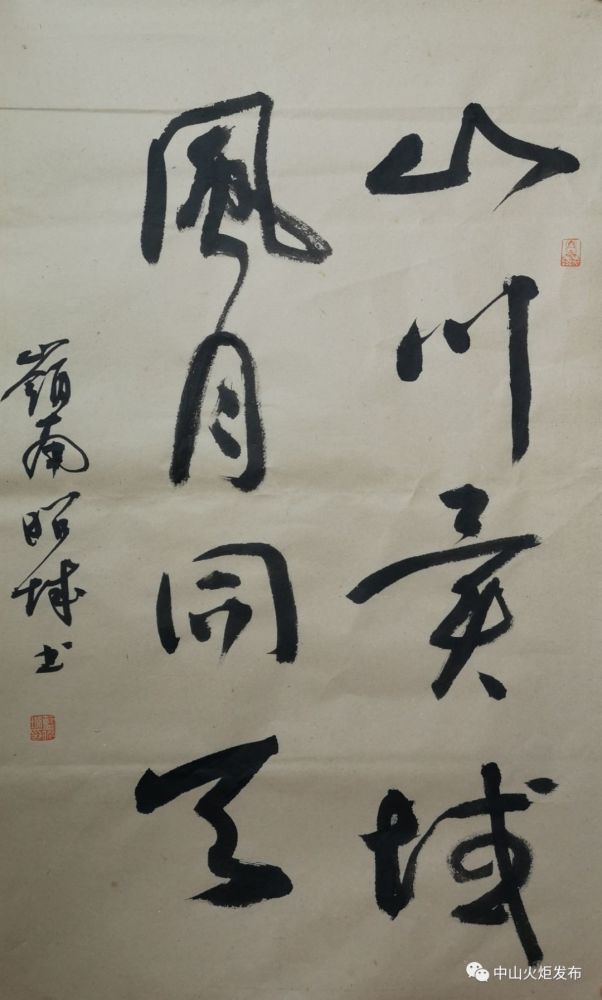 山川異域
風月同天
嶺南昭城书
中山火炬发布